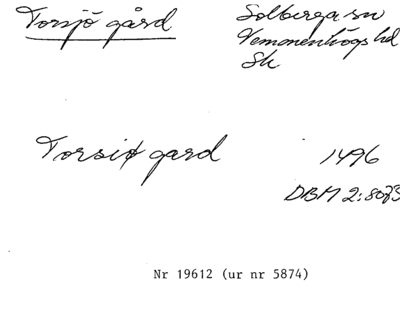 Torsjö gård
Solberga sn
Vemmenhögs hd
Sk
Torsiø gard
1496
DBM 2:8073
Nr 19612 (ur nr 5874)